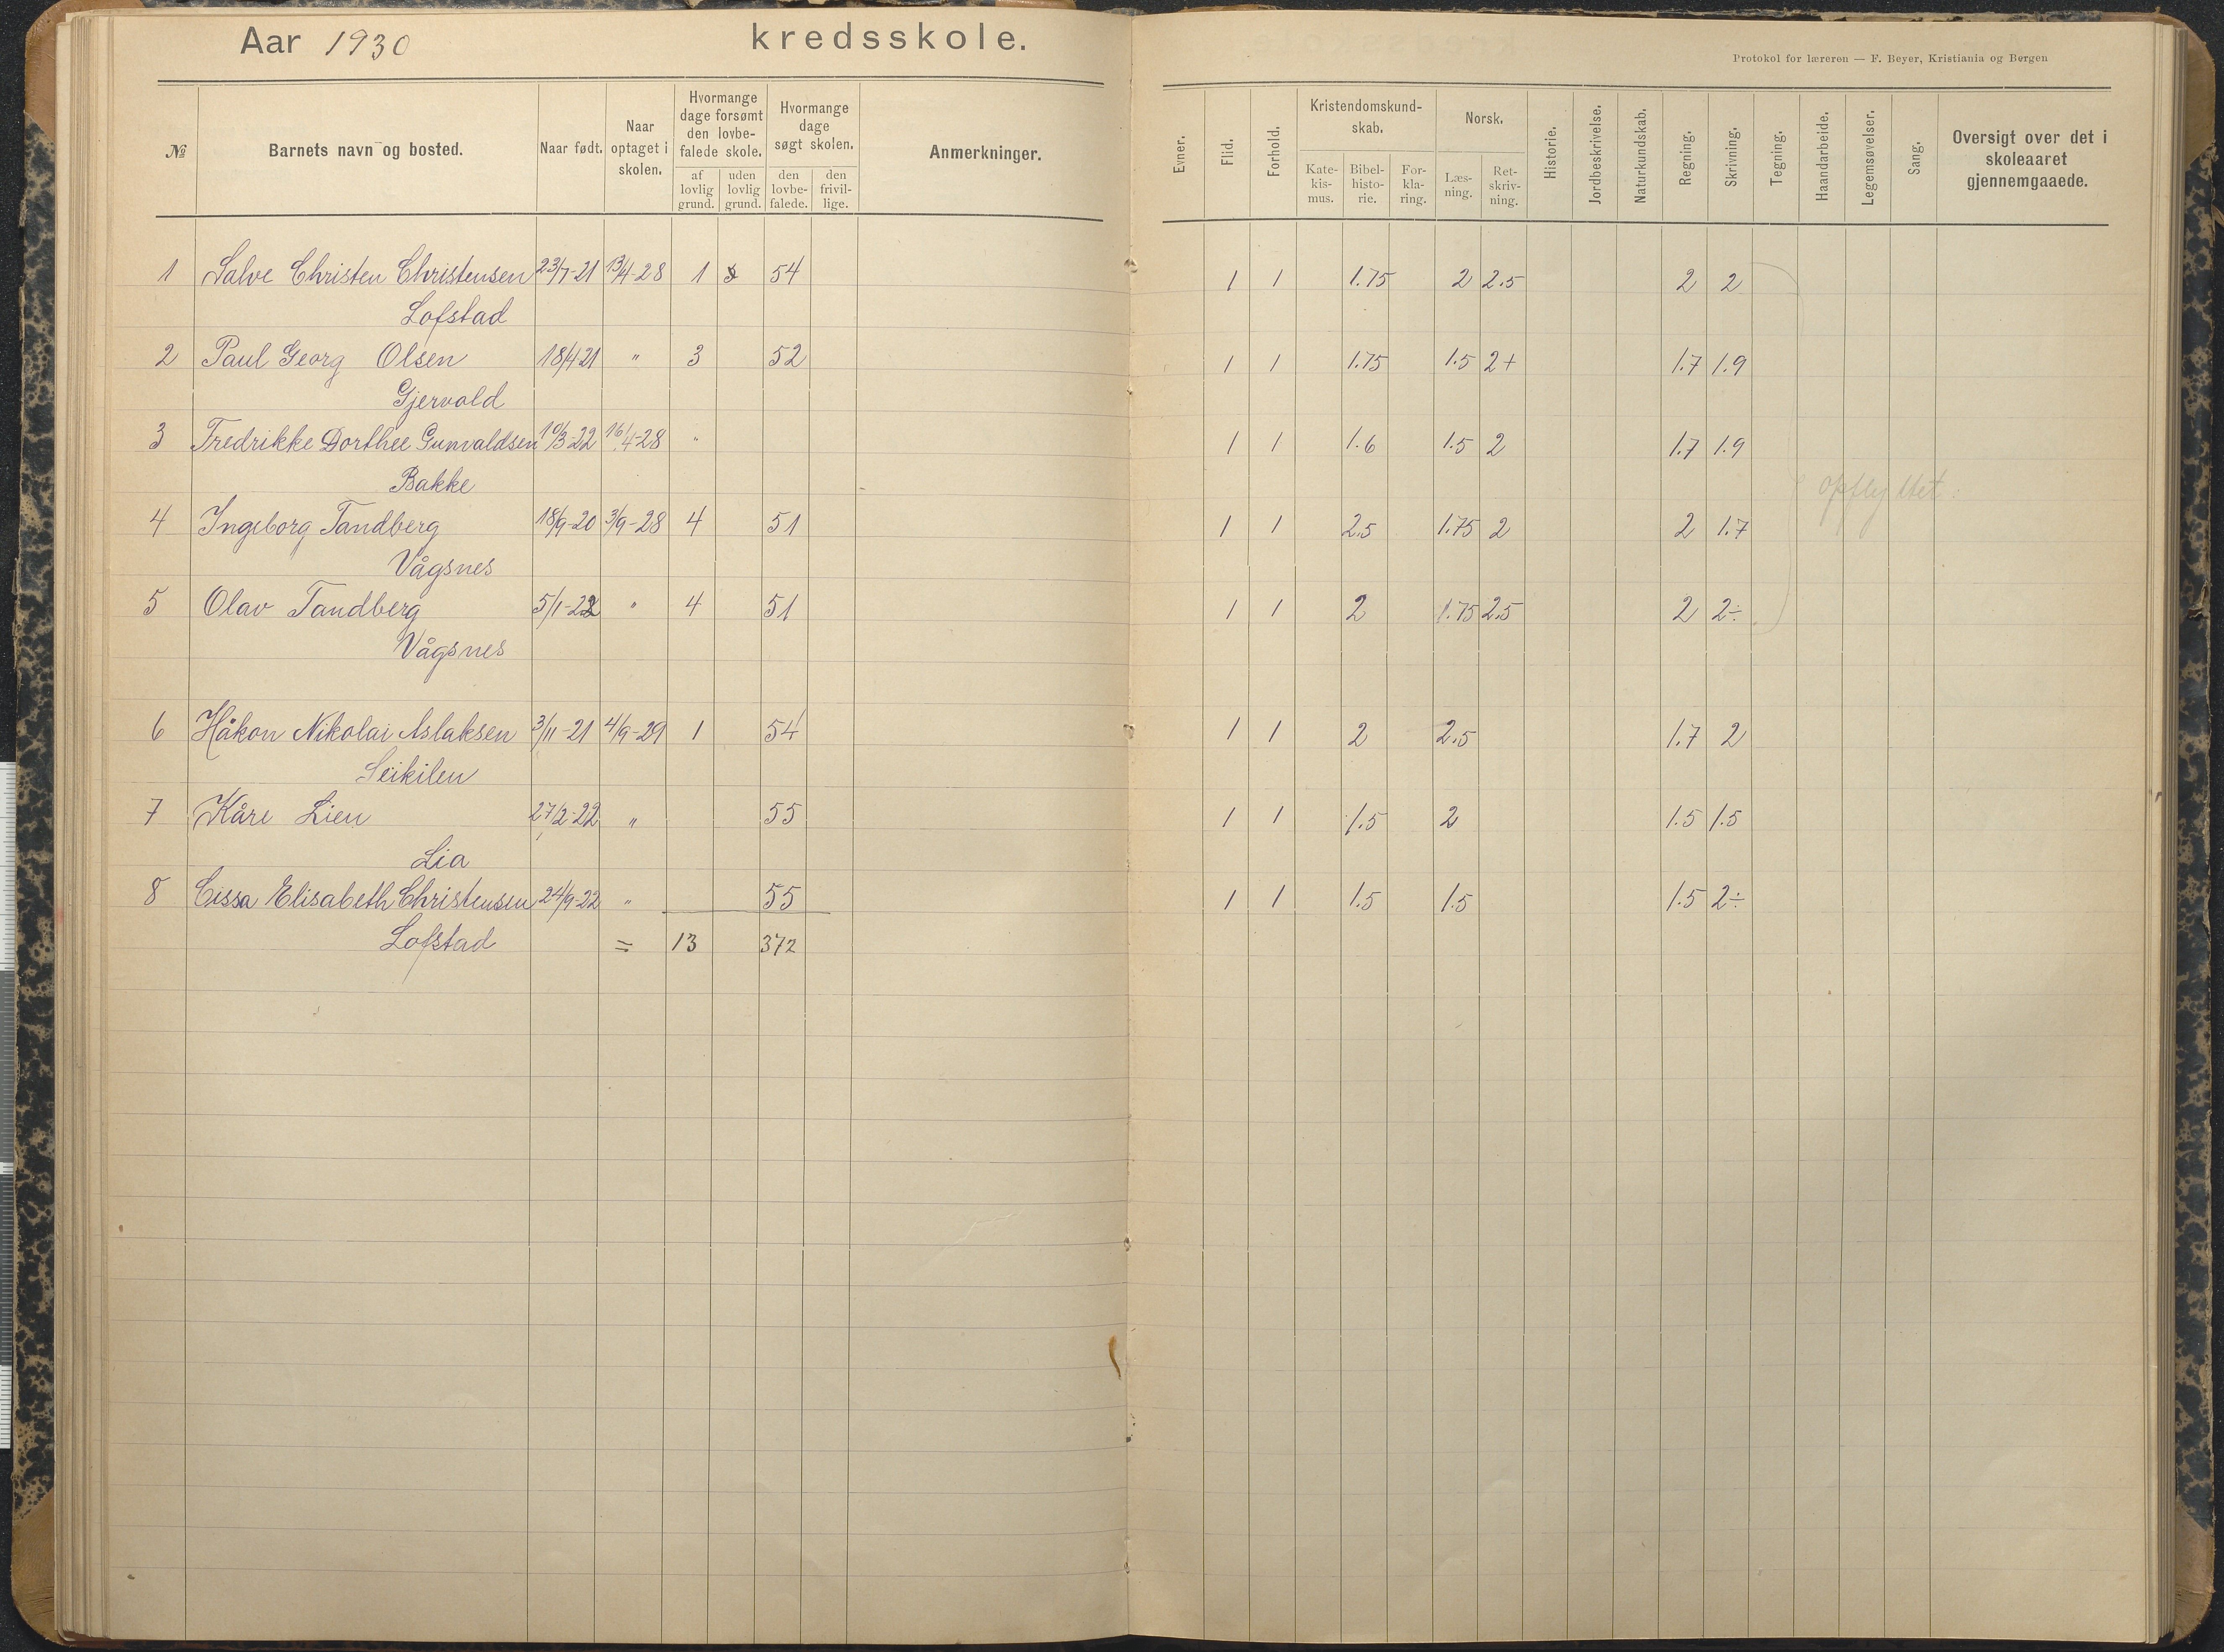 Aar 1930 kredsskole.
Protokol for læreren — F. Beyer, Kristiania og Bergen
№ Barnets navn og bosted. Naar født. Naar optaget i skolen. Hvormange dage forsømt den lovbefalede skole. af lovlig grund. uden lovlig grund. Hvormange dage søgt skolen. den lovbefalede. den frivillige. Anmerkninger.
Evner. Flid. Forhold. Kristendomskundskab. Katekismus. Bibelhistorie. Forklaring. Norsk. Læsning. Retskrivning. Historie. Jordbeskrivelse. Naturkundskab. Regning. Skrivning. Tegning. Haandarbeide. Legemsøvelser. Sang. Oversigt over det i skoleaaret gjennemgaaede.
1 Salve Christen Christensen 23/7-21 13/4-28 1 54 1 1 1.75 2 2.5 2 2
Lofstad
2 Paul Georg Olsen 18/4 21 " 3 52 1 1 1.75 1.5 2+ 1.7 1.9
Gjervold
3 Fredrikke Dorthee Gunvaldsen 10/3-22 16/4-28 " 1 1 1.6 1.5 2 1.7 1.9
Bakke
opflyttet
4 Ingeborg Tandberg 18/9-20 3/9-28 4 51 1 1 2.5 1.75 2 2 1.7
Vågsnes
5 Olav Tandberg 5/1-22 " 4 51 1 1 2 1.75 2.5 2 2÷
Vågsnes
6 Håkon Nikolai Aslaksen 3/11-21 4/9-29 1 54 1 1 2 2.5 1.7 2
Seikilen
7 Kåre Lien 27/2-22 " 55 1 1 1.5 2 1.5 1.5
Lia
8 Cissa Elisabeth Christensen 24/9-22 " 55 1 1 1.5 1.5 1.5 2÷
Lofstad = 13 372